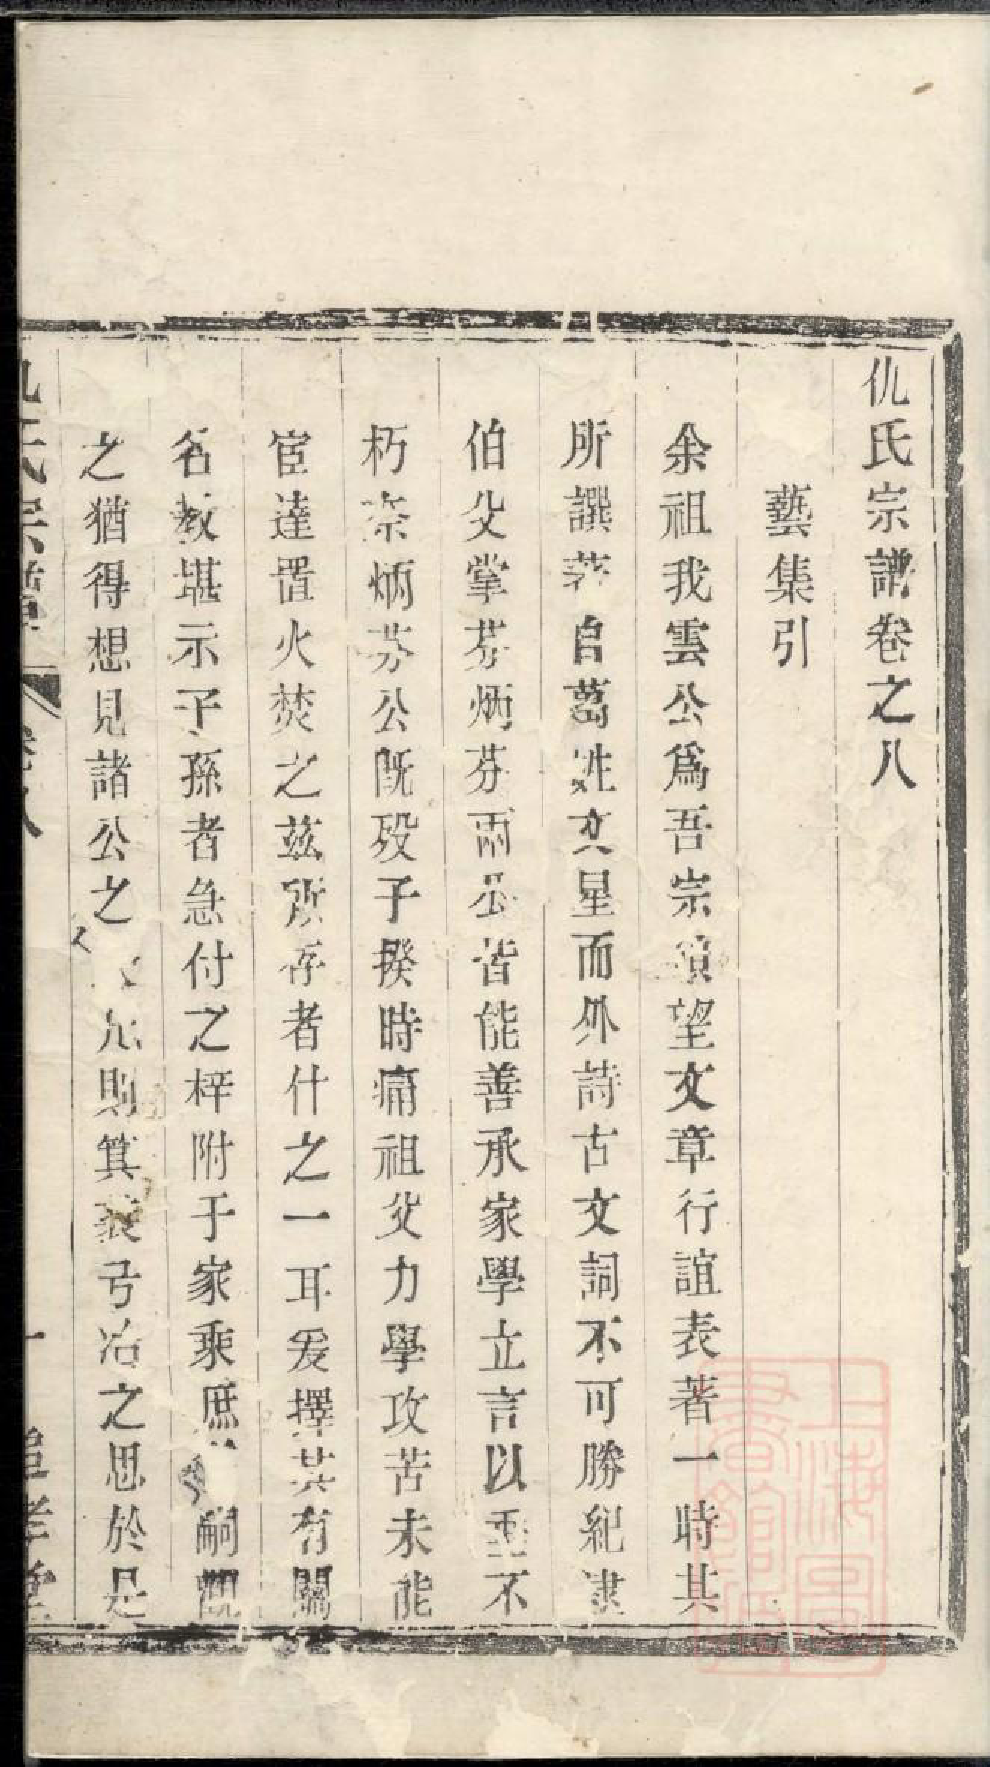 仇氏宗譜卷之八
藝集引
余祖我雲公爲吾宗領望文章行誼表著一時其
所譔著自葛姓文星而外詩古文詞不可勝紀逮
伯父掌芬炳芬兩公皆能善承家學立言以垂不
朽奈炳芬公既殁子揆時痛祖父力學攻苦未能
宦達置火焚之茲所存者什之一耳爰擇其有關
名教堪示子孫者急付之梓附于家乘庶嗣覬
之猶得想見諸公之則箕裘弓冶之思於是
仇氏宗譜 卷八 一 追孝堂
上海圖書館藏